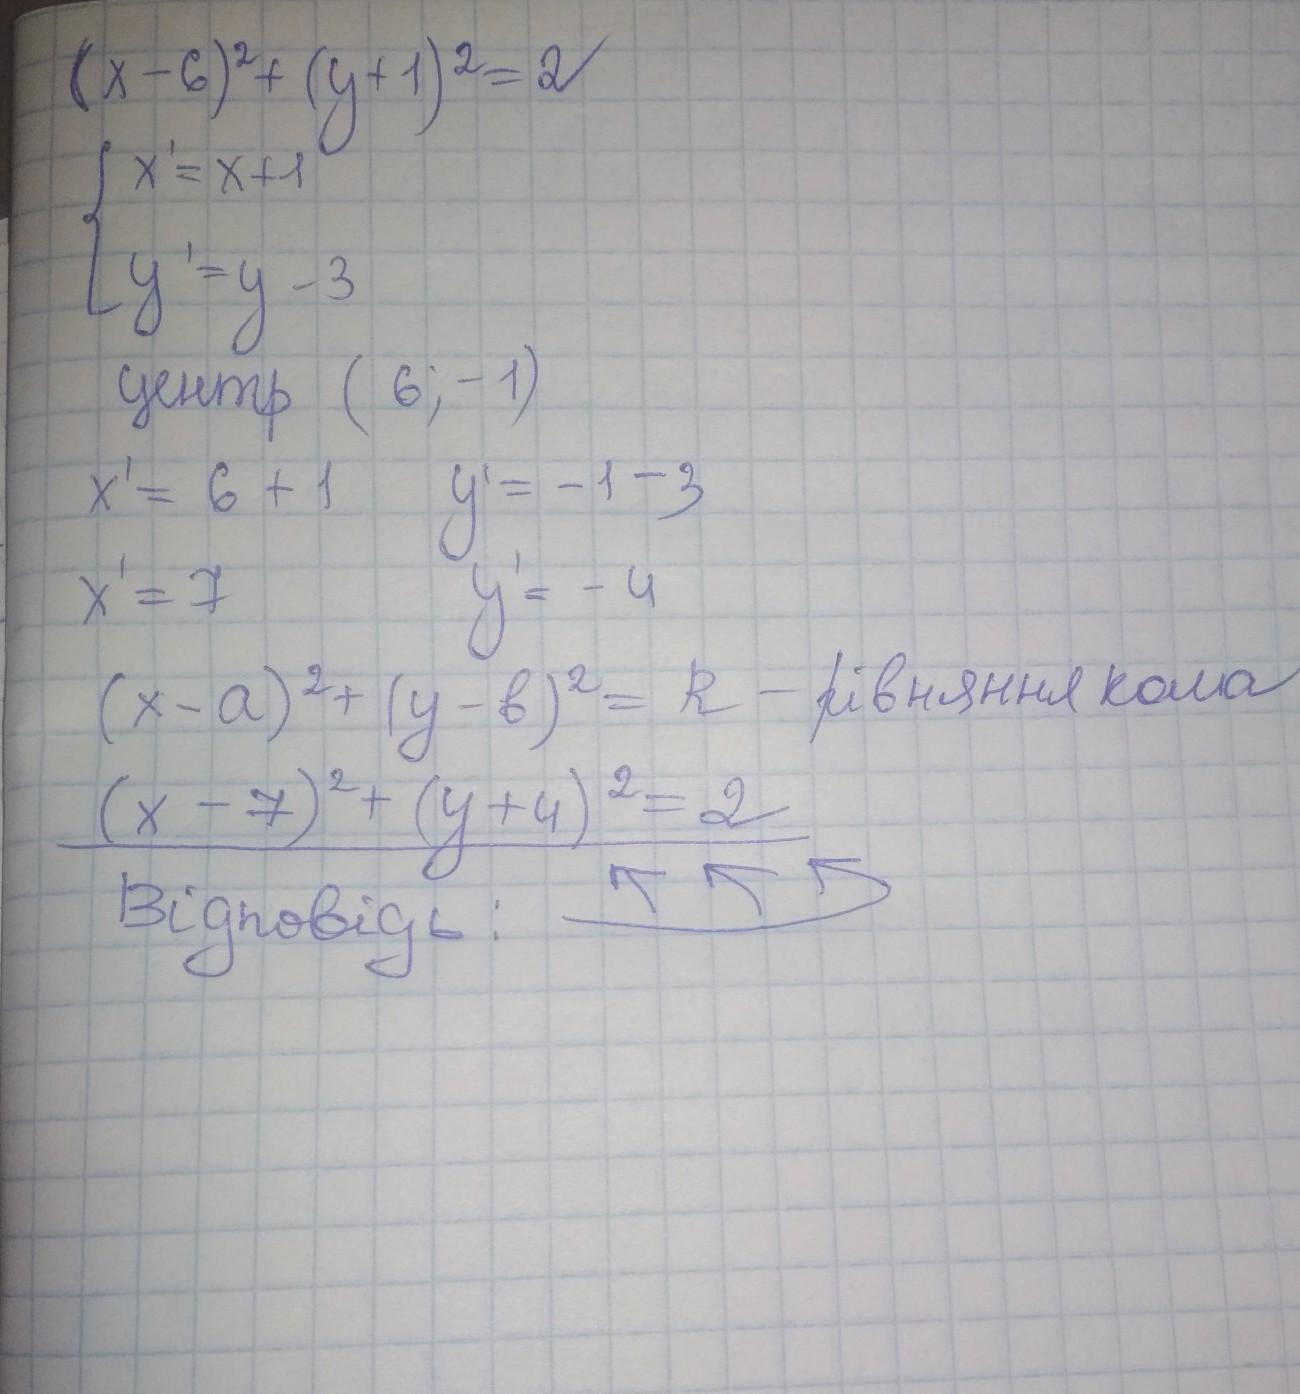 (x-6)²+(y+1)²=2
x'=x+1
y'=y-3
центр (6;-1)
x'=6+1 y'=-1-3
x'=7 y'=-4
(x-a)²+(y-b)²=R - рівняння кола
(x-7)²+(y+4)²=2
Відповідь: